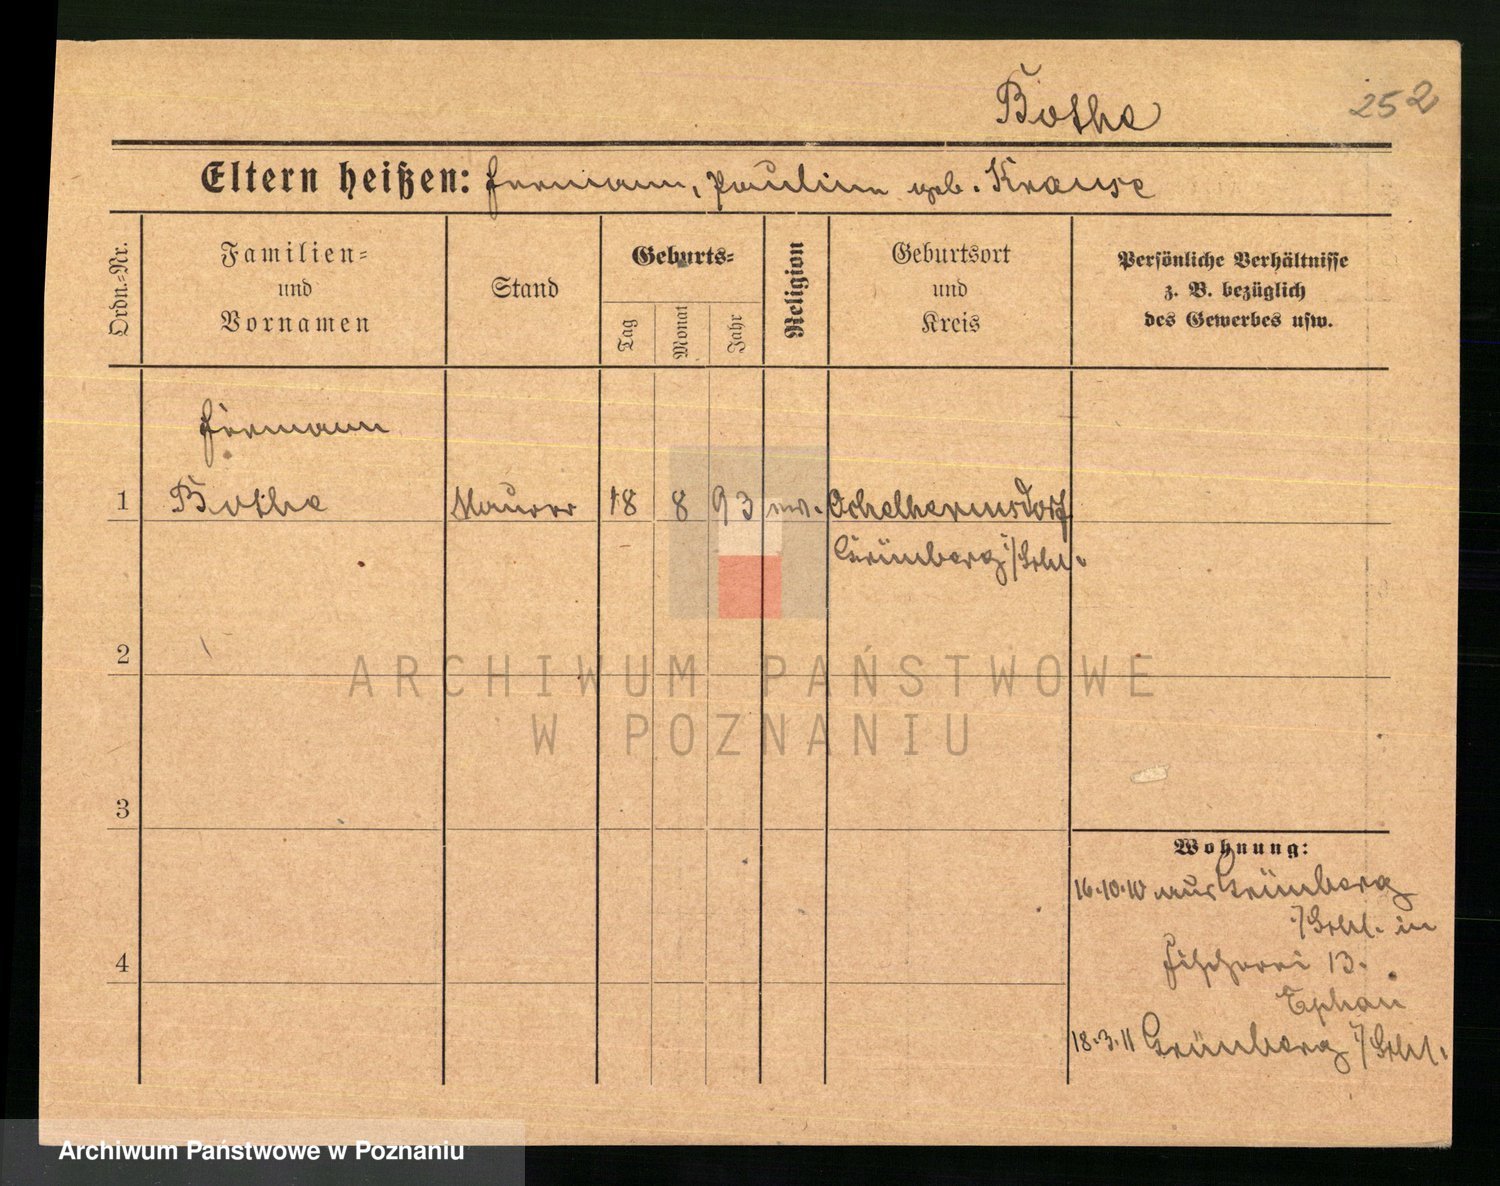 Bothe
252
Eltern heißen: Hermann, Pauline geb. Krause
Ordn.-Nr.
Familien-
und
Vornamen
Stand
Geburts-
Tag
Monat
Jahr
Religion
Geburtsort
und
Kreis
Persönliche Verhältnisse
z. B. bezüglich
des Gewerbes usw.
Hermann
1 Bothe Maurer 18 8 93 ev. Ochelhermsdorf
Grünberg i/Schl.
2
3
4
Wohnung:
16.10.10 aus Grünberg
i/Schl. in
Fischerei 13.
18.3.11 Grünberg i/Schl.
ARCHIWUM PAŃSTWOWE
W POZNANIU
Archiwum Państwowe w Poznaniu